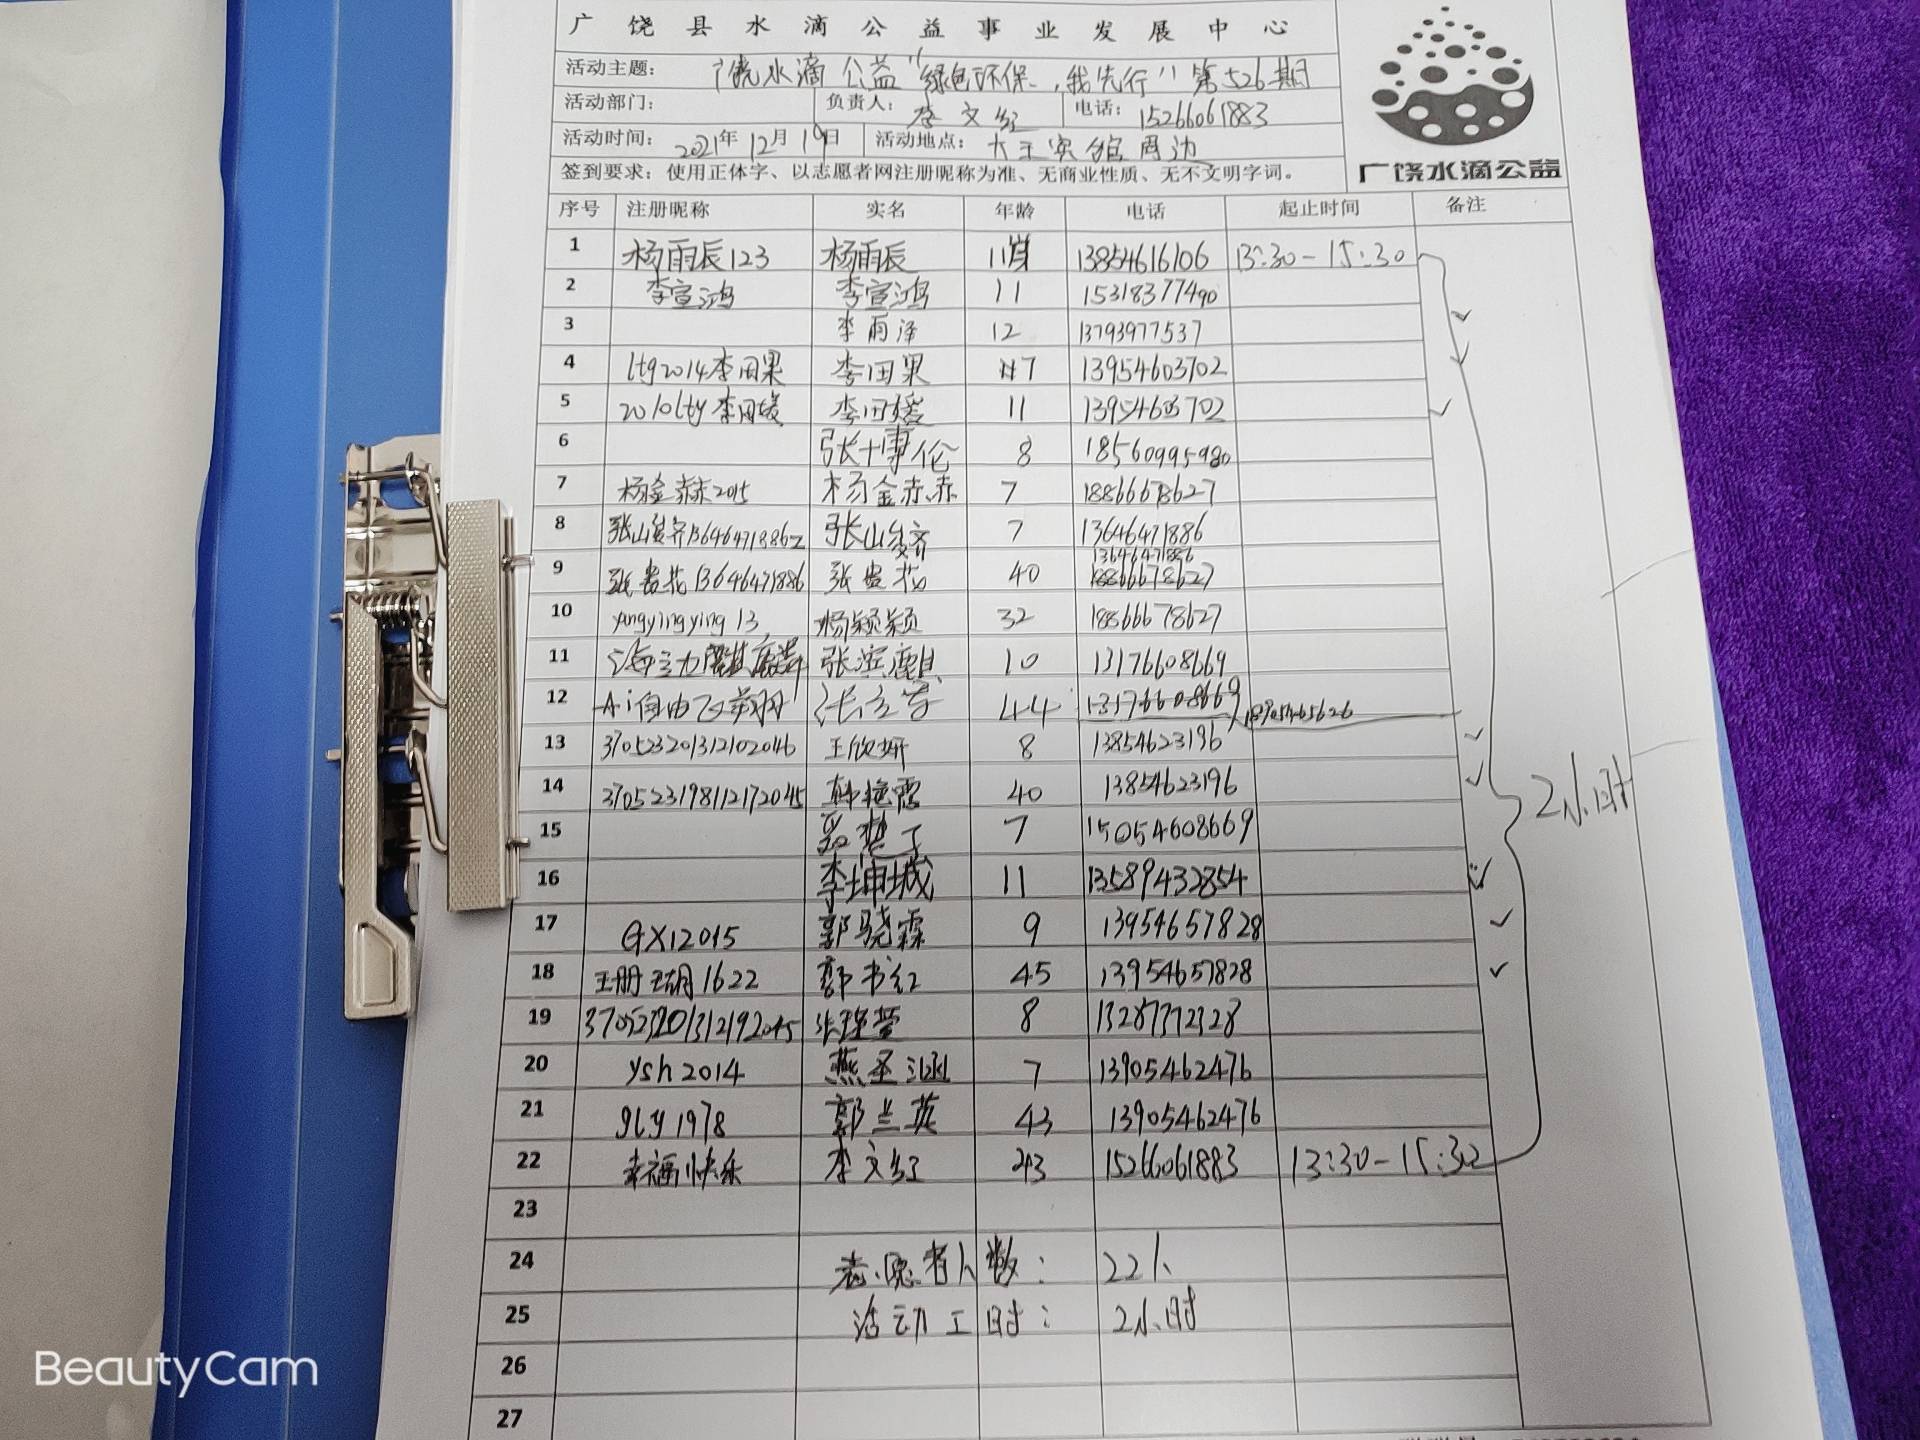 广饶县水滴公益事业发展中心
活动主题： 广饶水滴公益"绿色环保，我先行"第526期
活动部门： 负责人：李文红 电话：15266061883
活动时间：2021年12月19日 活动地点：大王宾馆周边
签到要求：使用正体字、以志愿者网注册昵称为准、无商业性质、无不文明字词。
广饶水滴公益
序号 注册昵称 实名 年龄 电话 起止时间 备注
1 杨雨辰123 杨雨辰 11 13854616106 13:30-15:30
2 李宣鸿 李宣鸿 11 15318377490
3 李雨泽 12 13793977537
4 ltg2014李田果 李田果 7 13954603702
5 2010lty李田媛 李田媛 11 13954603702
6 张博伦 8 18560995980
7 杨金赫2015 杨金赫 7 18866678627
8 张峻齐13646471886z 张峻齐 7 13646471886
9 张贵花13646471886 张贵花 40 13646471886
10 yangyingying13 杨颖颖 32 18866678627
11 张滨麒 10 13176608669
12 Ai自由飞翔 44 13176608669 18905465626
13 370523201312102046 王欣妍 8 13854623196
14 370523198112172045 韩艳霞 40 13854623196
15 7 15054608669
16 李坤城 11 13589432854
17 GX12015 郭骁霖 9 13954657828
18 王册瑚1622 郭书红 45 13954657828
19 370523201312192045 8 13287372328
20 ysh2014 燕圣涵 7 13905462476
21 gly1978 郭兰英 43 13905462476
22 幸福快乐 李文红 43 15266061883 13:30-15:30
2小时
23
24 志愿者人数： 22人
25 活动工时： 2小时
26
27
BeautyCam